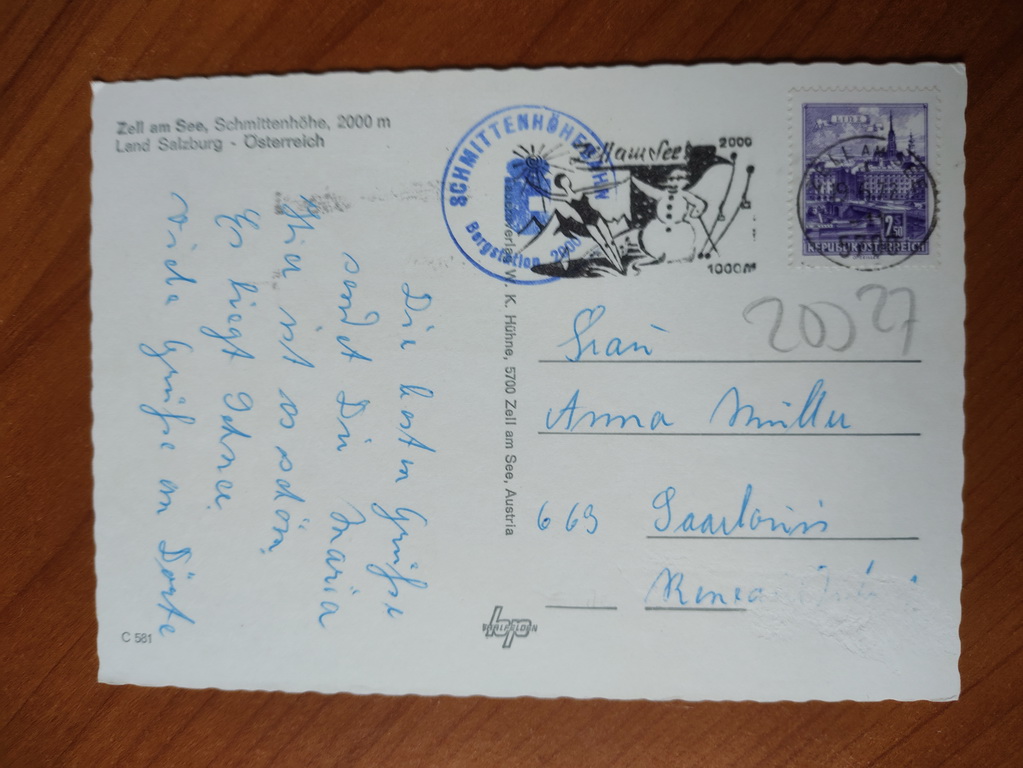 Zell am See, Schmittenhöhe, 2000 m
Land Salzburg - Österreich
SCHMITTENHÖHEBAHN
Bergstation 2000
Zell am See
2000
1000m
LINZ
2.50
REPUBLIK ÖSTERREICH
2027
Die besten Grüße
sendet Dir Maria
Hier ist es schön
Es liegt Schnee.
viele Grüße an Dörte
verlag W. K. Hühne, 5700 Zell am See, Austria
Frau
Anna Müller
663 Saarlouis
C 581